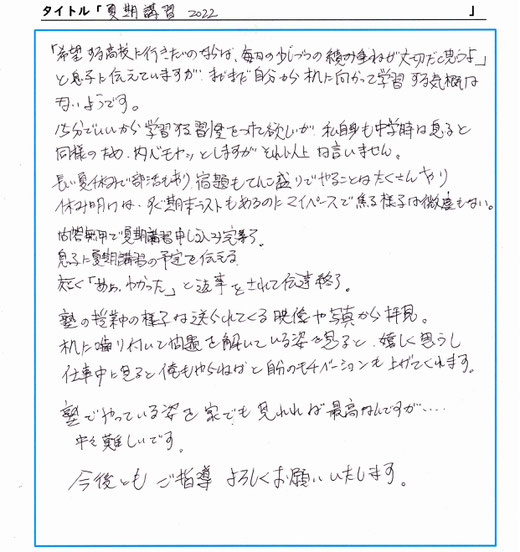 タイトル「夏期講習 2022 」
「希望する高校に行きたいのならば、毎日の少しづつの積み重ねが大切だと思うよ」
と息子に伝えていますが、まだまだ自分から机に向かって学習する気概は
ないようです。
15分でいいから学習する習慣をつけて欲しいが、私自身も中学時は息子と
同様のため、内心モヤッとしますがそれ以上は言いません。
長い夏休みで部活もあり、宿題もてんこ盛りでやることはたくさんあり
休み明けは、すぐ期末テストもあるのにマイペースで焦る様子は微塵もない。
問答無用で夏期講習申し込み完了。
息子に夏期講習の予定を伝える。
短く「あぁ、わかった」と返事をされて伝達終了。
塾の授業中の様子は送られてくる映像や写真から拝見。
机に噛り付いて問題を解いている姿を見ると、嬉しく思うし
仕事中に見ると俺もやらねばと自分のモチベーションも上げてくれます。
塾でやっている姿を家でも見れれば最高なんですが‥‥
中々難しいです。
今後ともご指導よろしくお願いいたします。